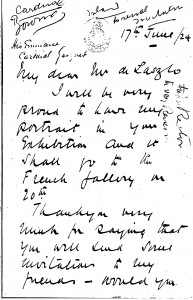 Cardinal
17th June/24
His Eminence
Cardinal
My dear Mr de Laszlo
I will be very
proud to have my
portrait in your
Exhibition and it
shall go to the
French Gallery on
20th
Thank you very
much for saying that
you will send some
invitations to my
friends — would you